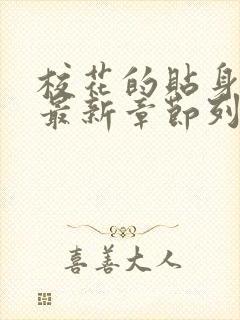 校花的貼身
最新章節列
喜善大人